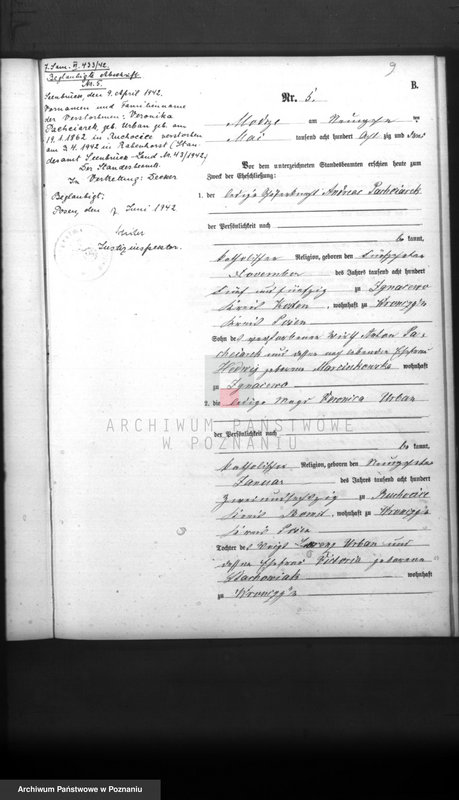 7. Sam. II. 433/42.
Beglaubigte Abschrift
Nr. 5.
Seenbrück, den 9. April 1942.
Vornamen und Familienname
der Verstorbenen: Veronika
Pacheiarek, geb. Urban geb. am
19.1.1862 in Ruchocice verstorben
am 3.4.1942 in Rabenhorst (Stan-
desamt Seenbrück-Land Nr. 43/1942)
Der Standesbeamte
In Vertretung: Becker
Beglaubigt:
Posen, den 7 Juni 1942
Justizinspektor.
9
B.
Nr. 5.
am Neunzehn ten
Mai tausend acht hundert acht zig und
Vor dem unterzeichneten Standesbeamten erschien heute zum
Zweck der Eheschließung:
1. der ledige Andreas Pacheiarek
der Persönlichkeit nach
be kannt,
katholischer Religion, geboren den
November des Jahres tausend acht hundert
fünf und fünfzig zu Ignacewo
Kreis Kosten, wohnhaft zu
Kreis Posen
Sohn des verstorbenen Wirth Anton Pa-
cheiarek und dessen noch lebenden Ehefrau
Hedwig geborene Marcinkowska wohnhaft
zu Ignacewo
2. die ledige Magd Veronica Urban
der Persönlichkeit nach
be kannt,
katholischer Religion, geboren den Neunzehnten
Januar des Jahres tausend acht hundert
zwei und sechszig zu Ruchocice
Kreis Bomst, wohnhaft zu
Kreis Posen
Tochter des Vogts Lorenz Urban und
dessen Ehefrau Victoria geborene
Stachowiak wohnhaft
zu
ARCHIWUM PAŃSTWOWE
W POZNANIU
Archiwum Państwowe w Poznaniu